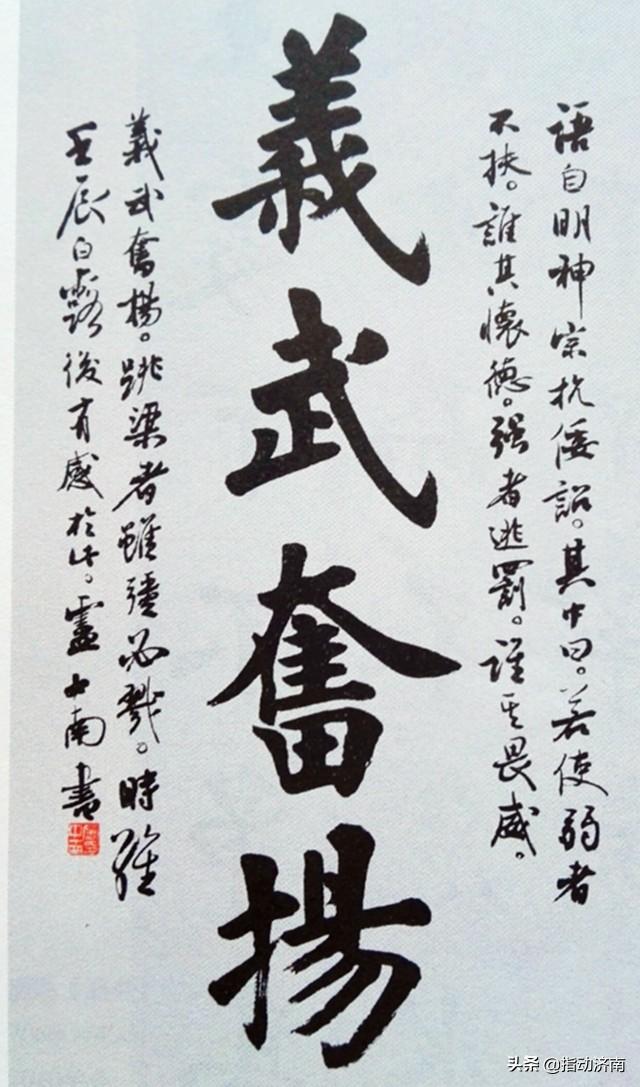 語自明神宗抗倭詔。其中曰。若使弱者
不扶。誰其懷德。强者逃罰。誰其畏威。
義武奮揚
義武奮揚。跳梁者雖彊必戮。時維
壬辰白露後有感於此。盧中南書
头条 @指动济南